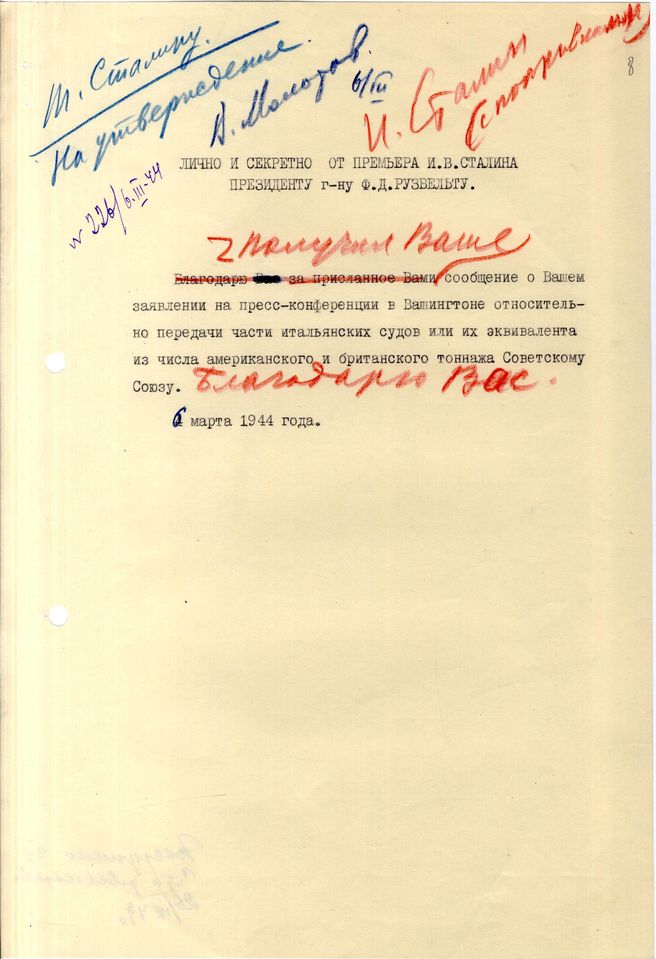 Т. Сталину.
На утверждение.
В. Молотов.
6/III
И. Сталин
(с поправками)
8
№ 226/6.III-44
ЛИЧНО И СЕКРЕТНО ОТ ПРЕМЬЕРА И.В.СТАЛИНА
ПРЕЗИДЕНТУ г-ну Ф.Д.РУЗВЕЛЬТУ.
Получил Ваше
Благодарю Вас за присланное Вами сообщение о Вашем
заявлении на пресс-конференции в Вашингтоне относитель-
но передачи части итальянских судов или их эквивалента
из числа американского и британского тоннажа Советскому
Союзу. Благодарю Вас.
6 марта 1944 года.